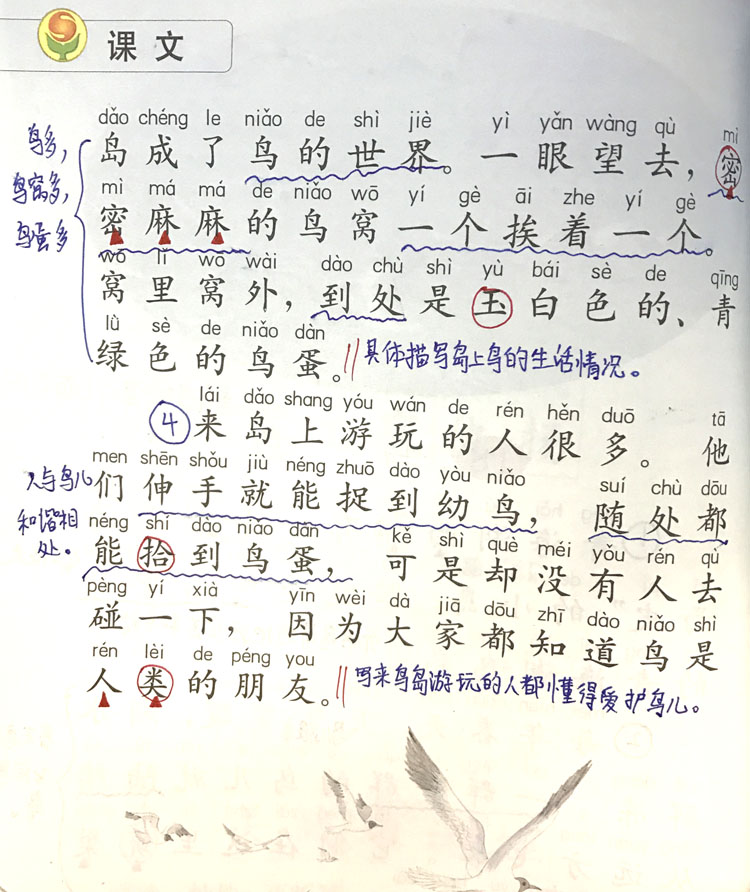 课文
dǎo chéng le niǎo de shì jiè yì yǎn wàng qù mì
岛成了鸟的世界。一眼望去，密
mì má má de niǎo wō yí gè āi zhe yí gè
密麻麻的鸟窝一个挨着一个。
wō lǐ wō wài dào chù shì yù bái sè de qīng
窝里窝外，到处是玉白色的、青
lǜ sè de niǎo dàn
绿色的鸟蛋。
鸟多，
鸟窝多，
鸟蛋多
具体描写岛上鸟的生活情况。
lái dǎo shang yóu wán de rén hěn duō tā
④来岛上游玩的人很多。他
men shēn shǒu jiù néng zhuō dào yòu niǎo suí chù dōu
们伸手就能捉到幼鸟，随处都
néng shí dào niǎo dàn kě shì què méi yǒu rén qù
能拾到鸟蛋，可是却没有人去
pèng yí xià yīn wèi dà jiā dōu zhī dào niǎo shì
碰一下，因为大家都知道鸟是
rén lèi de péng you
人类的朋友。
人与鸟儿
和谐相
处。
写来鸟岛游玩的人都懂得爱护鸟儿。